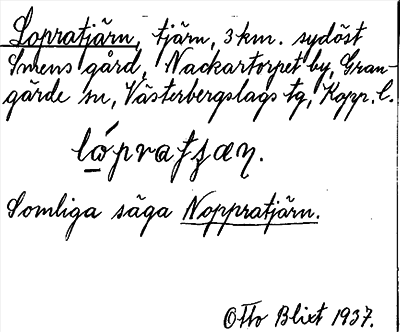 Lopratjärn, tjärn, 3 km. sydöst
Smens gård, Nackartorpet by, Gran-
gärde sn, Västerbergslags tg, Kopp. l.
Somliga säga Noppratjärn.
Otto Blixt 1937.